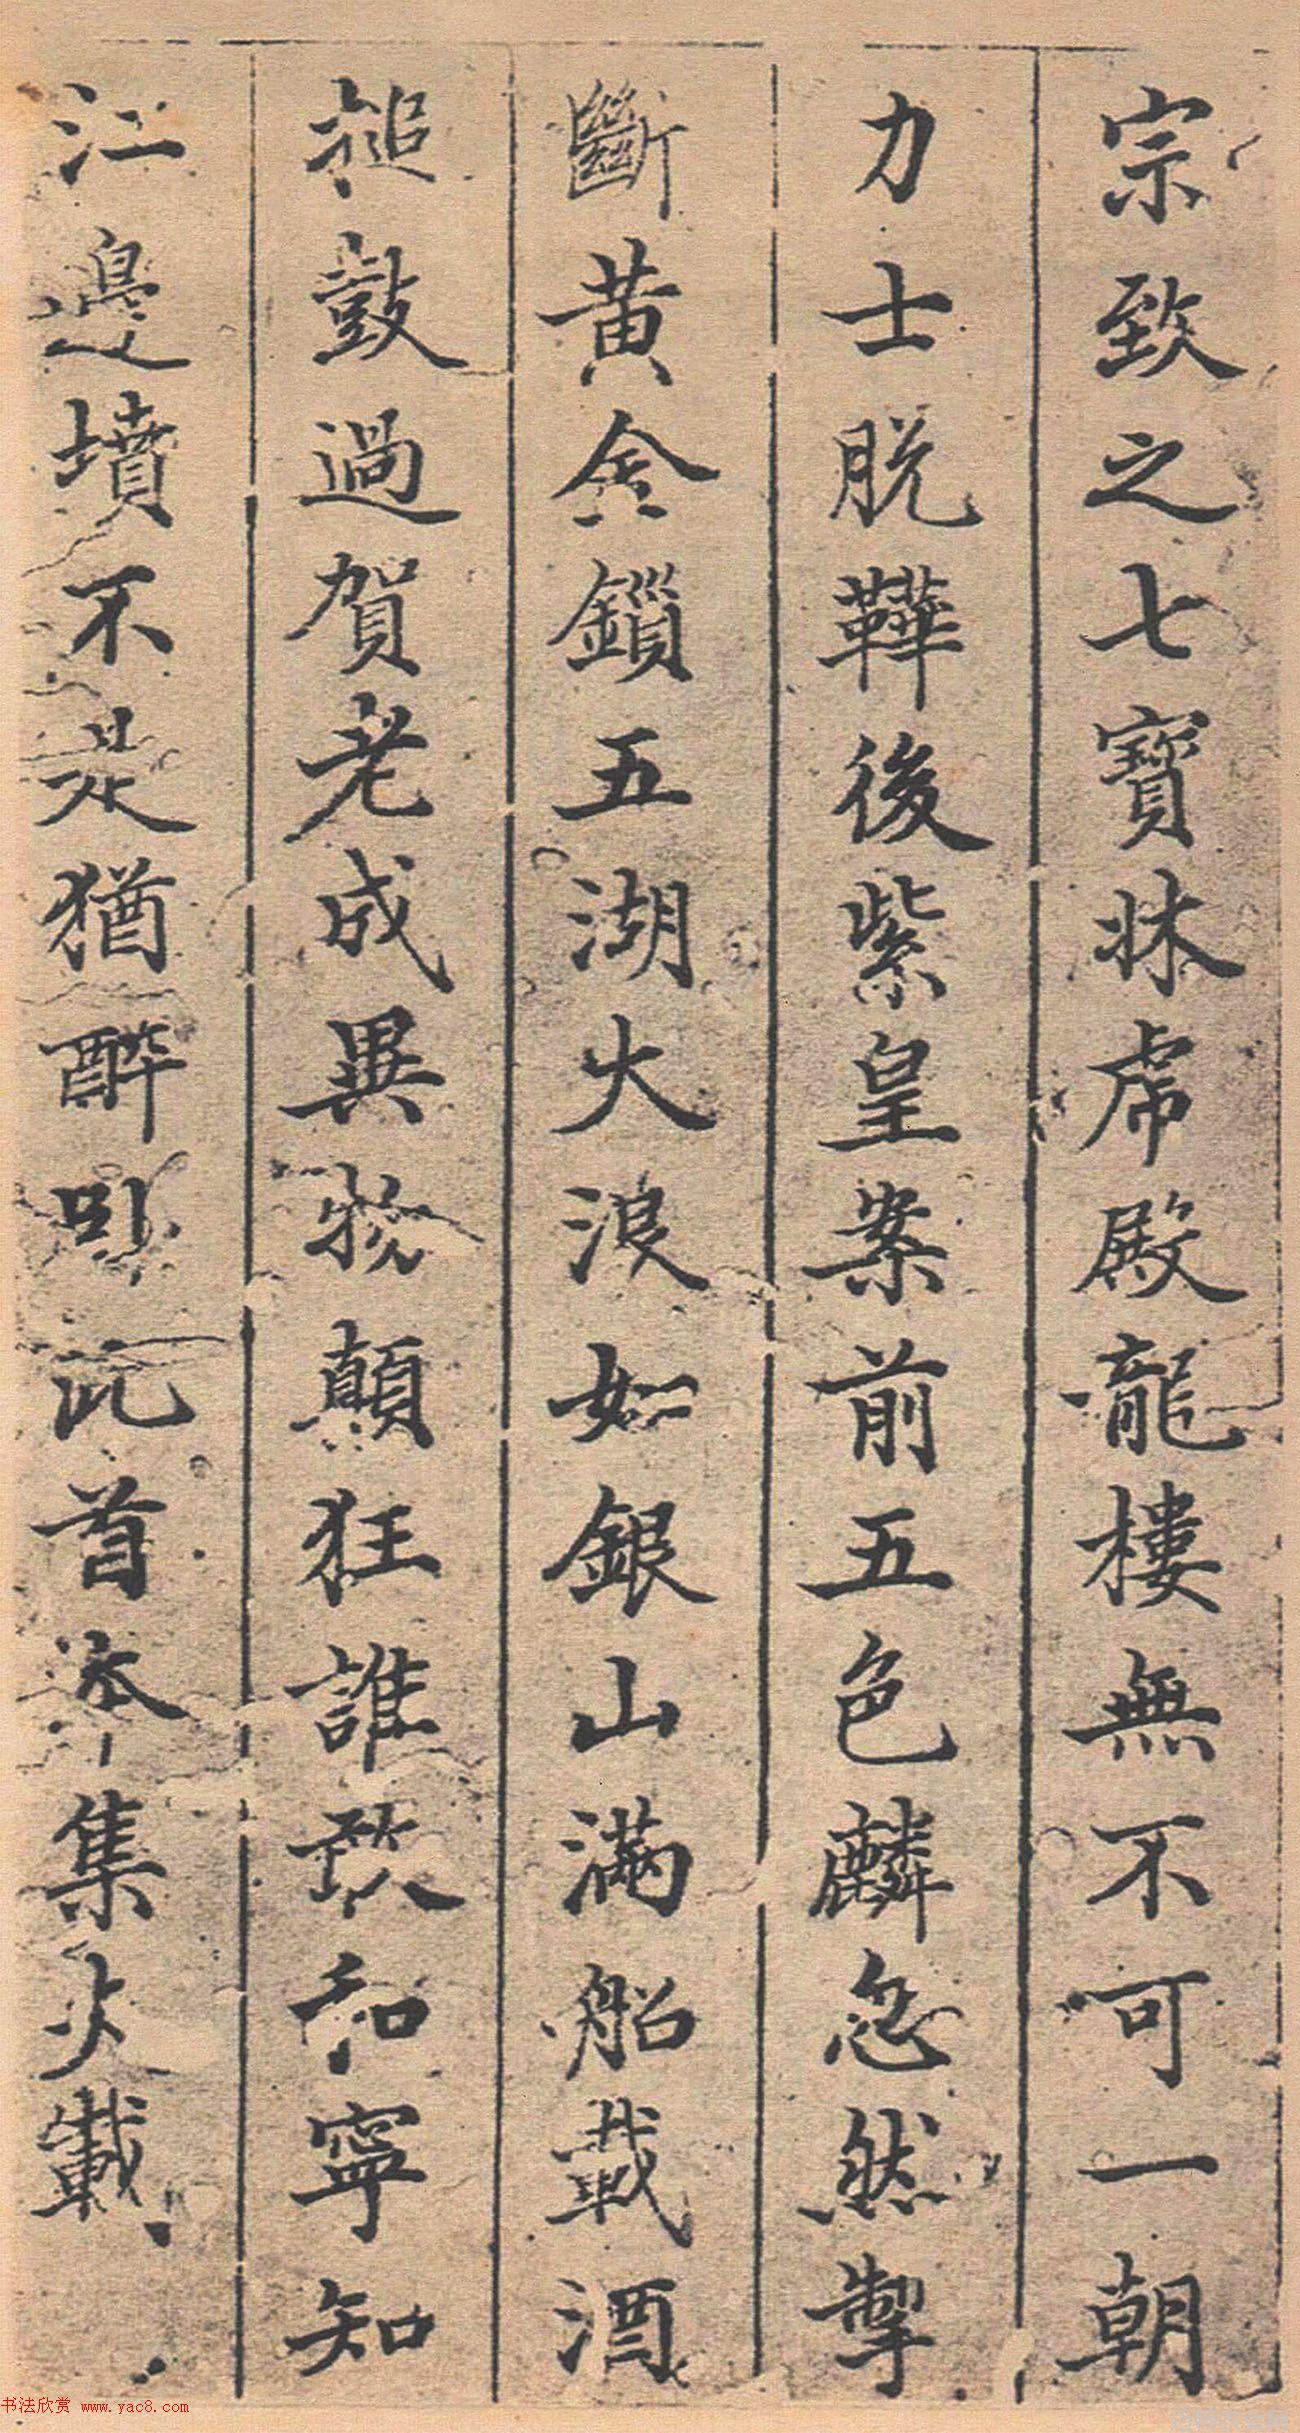 宗致之七寶牀虎殿龍樓無不可一朝
力士脫鞾後紫皇案前五色麟忽然掣
斷黃金鎖五湖大浪如銀山滿船載酒
搥鼓過賀老成異物顛狂誰敢和寧知
江邊墳不是猶醉卧此首本集少載
书法欣赏 www.yac8.com